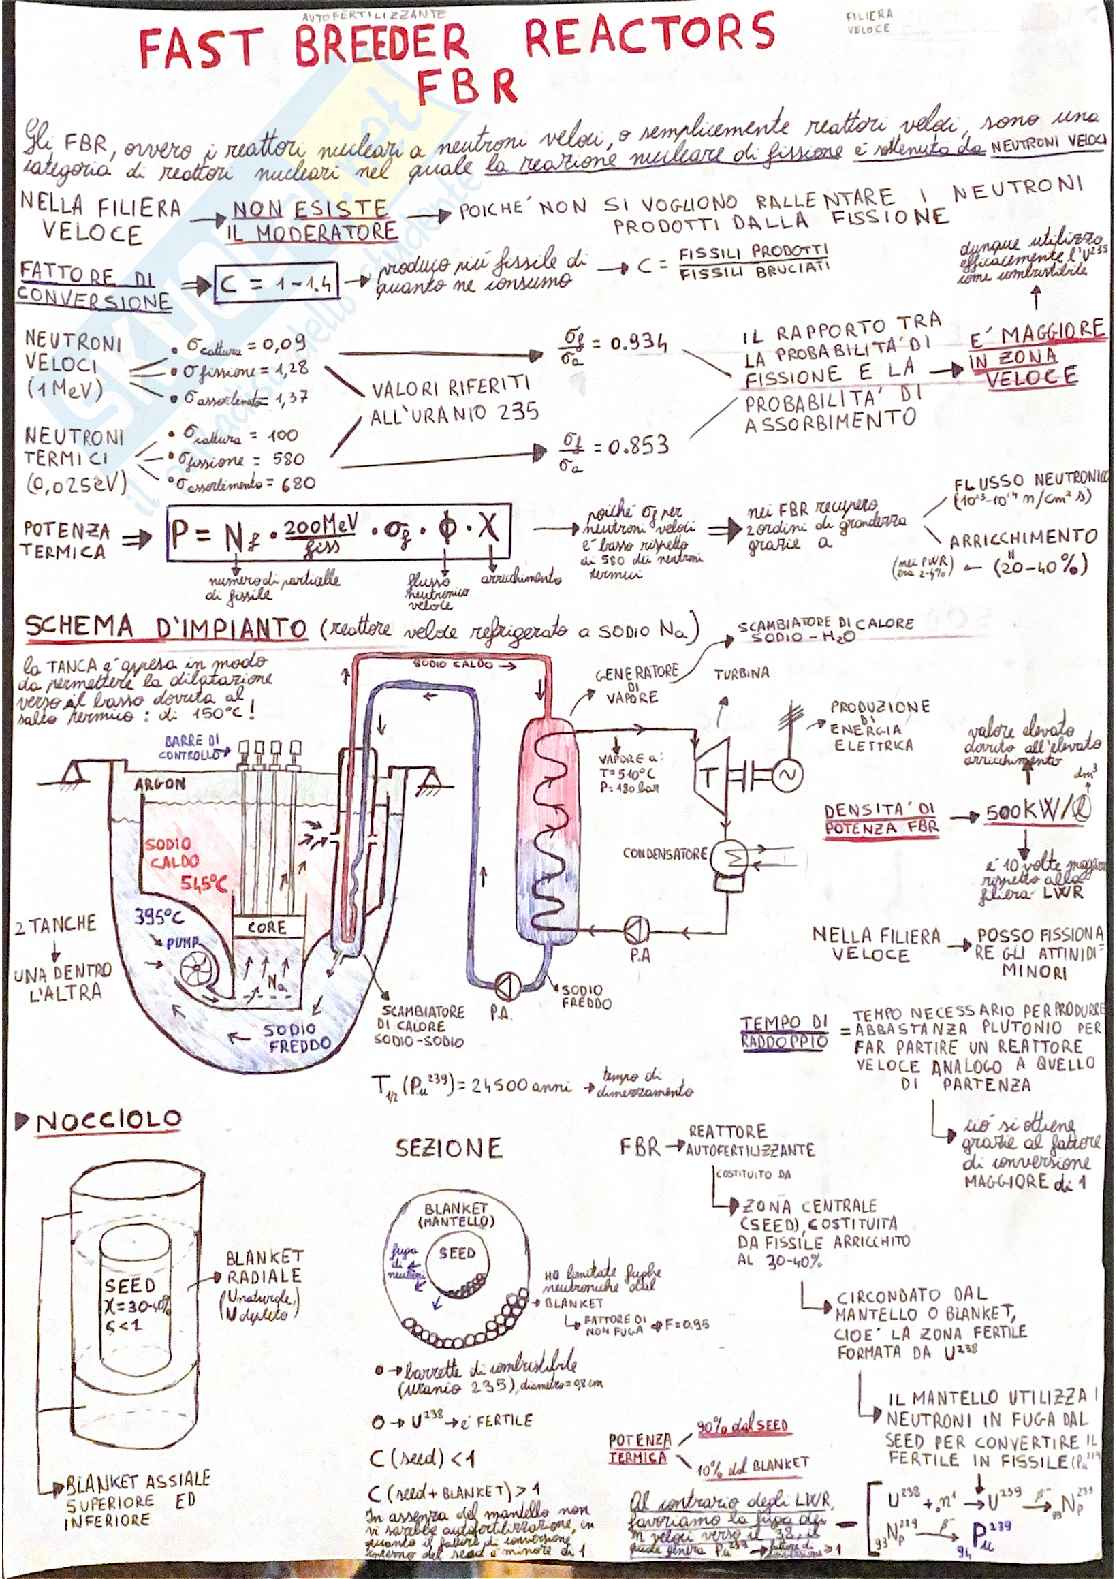 AUTOFERTILIZZANTE
FILIERA
VELOCE
FAST BREEDER REACTORS
FBR
Gli FBR, ovvero i reattori nucleari a neutroni veloci, o semplicemente reattori veloci, sono una
categoria di reattori nucleari nel quale la reazione nucleare di fissione è sostenuta da NEUTRONI VELOCI
NELLA FILIERA
VELOCE
NON ESISTE
IL MODERATORE
POICHE' NON SI VOGLIONO RALLENTARE I NEUTRONI
PRODOTTI DALLA FISSIONE
FATTORE DI
CONVERSIONE
C = 1-1.4
produco più fissile di
quanto ne consumo
C = FISSILI PRODOTTI
FISSILI BRUCIATI
dunque utilizzo
efficacemente l'U²³⁵
come combustibile
NEUTRONI
VELOCI
(1 MeV)
• σcattura = 0,09
• σfissione = 1,28
• σassorbimento = 1,37
NEUTRONI
TERMICI
(0,025eV)
• σcattura = 100
• σfissione = 580
• σassorbimento = 680
VALORI RIFERITI
ALL'URANIO 235
σf/σa = 0.934
σf/σa = 0.853
IL RAPPORTO TRA
LA PROBABILITA' DI
FISSIONE E LA
PROBABILITA' DI
ASSORBIMENTO
E' MAGGIORE
IN ZONA
VELOCE
POTENZA
TERMICA
P = Nf · 200MeV/fiss · σf · Φ · X
numero di particelle
di fissile
flusso
neutronico
veloce
arricchimento
poiché σf per
neutroni veloci
è basso rispetto
ai 580 dei neutroni
termici
nei FBR recupero
2 ordini di grandezza
grazie a
FLUSSO NEUTRONICO
(10¹³-10¹⁴ n/cm² s)
ARRICCHIMENTO
(20-40%)
(nei PWR
era 2-4%)
SCHEMA D'IMPIANTO (reattore veloce refrigerato a SODIO Na)
la TANCA è appesa in modo
da permettere la dilatazione
verso il basso dovuta al
salto termico: di 150°C!
BARRE DI
CONTROLLO
ARGON
SODIO
CALDO
545°C
395°C
PUMP
CORE
Na
SODIO
FREDDO
2 TANCHE
UNA DENTRO
L'ALTRA
SODIO CALDO
SCAMBIATORE
DI CALORE
SODIO-SODIO
P.A.
SODIO
FREDDO
GENERATORE
DI
VAPORE
SCAMBIATORE DI CALORE
SODIO-H₂O
TURBINA
VAPORE a:
T=510°C
P=180 bar
T
CONDENSATORE
P.A
PRODUZIONE
DI
ENERGIA
ELETTRICA
valore elevato
dovuto all'elevato
arricchimento
dm³
DENSITA' DI
POTENZA FBR
500KW/l
è 10 volte maggiore
rispetto alla
filiera LWR
NELLA FILIERA
VELOCE
POSSO FISSIONA
RE GLI ATTINIDI
MINORI
TEMPO DI
RADDOPPIO
= TEMPO NECESSARIO PER PRODURRE
ABBASTANZA PLUTONIO PER
FAR PARTIRE UN REATTORE
VELOCE ANALOGO A QUELLO
DI PARTENZA
ciò si ottiene
grazie al fattore
di conversione
MAGGIORE di 1
T½ (Pu²³⁹) = 24500 anni → tempo di
dimezzamento
NOCCIOLO
SEED
X=30-40%
C<1
BLANKET
RADIALE
(U naturale,
U depleto)
BLANKET ASSIALE
SUPERIORE ED
INFERIORE
SEZIONE
BLANKET
(MANTELLO)
SEED
fuga
di
neutroni
ho limitate fughe
neutroniche dal
BLANKET
FATTORE DI
NON FUGA → F=0.95
barrette di combustibile
(uranio 235), diametro=0,8 cm
O → U²³⁸ → è FERTILE
C (seed) < 1
C (seed + BLANKET) > 1
In assenza del mantello non
vi sarebbe autofertilizzazione, in
quanto il fattore di conversione
interno del seed è minore di 1
FBR → REATTORE
AUTOFERTILIZZANTE
COSTITUITO DA
ZONA CENTRALE
(SEED), COSTITUITA
DA FISSILE ARRICCHITO
AL 30-40%
CIRCONDATO DAL
MANTELLO O BLANKET,
CIOE' LA ZONA FERTILE
FORMATA DA U²³⁸
IL MANTELLO UTILIZZA I
NEUTRONI IN FUGA DAL
SEED PER CONVERTIRE IL
FERTILE IN FISSILE (Pu²³⁹)
POTENZA
TERMICA
90% dal SEED
10% dal BLANKET
Al contrario degli LWR,
favoriamo la fuga di
n veloci verso il 38, il
quale genera Pu²³⁹ → fattore di
conversione > 1
U²³⁸ + ₀n¹ → U²³⁹ β⁻→ ₉₃Np²³⁹
₉₃Np²³⁹ β⁻→ ₉₄Pu²³⁹